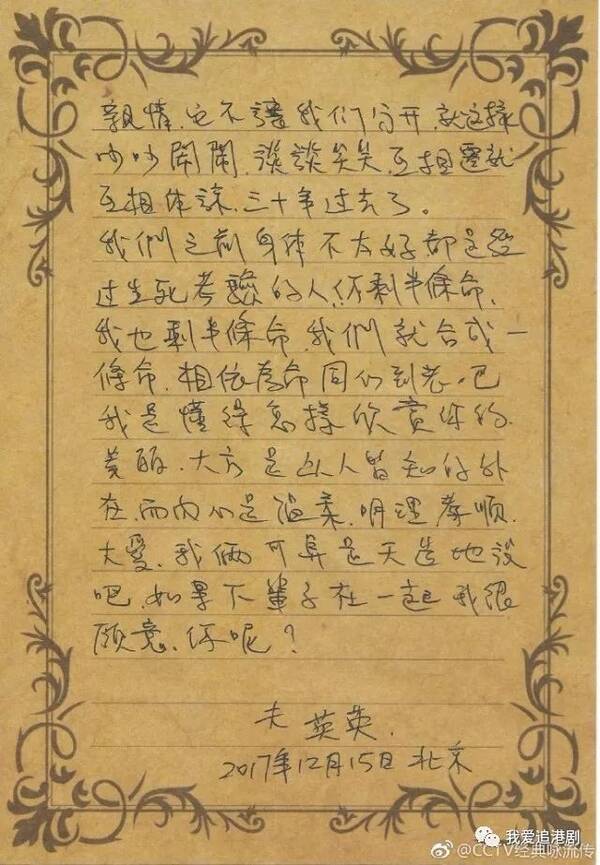 親情.它不讓我们分开.就这樣
吵吵鬧鬧.談談笑笑.互相遷就
互相体諒.三十年过去了。
我們之前身体不太好都是经
过生死考驗的人.你剩半條命,
我也剩半條命.我們就合成一
條命.相依為命同行到老.吧
我是懂得怎樣欣賞你的.
美丽.大方是众人皆知的外
在.而内心是温柔.明理孝順.
大愛.我倆可算是天造地设
吧.如果下輩子在一起我很
願意.你呢?
夫 英英.
2017年12月15日 北京
我爱追港剧
@CCTV经典咏流传